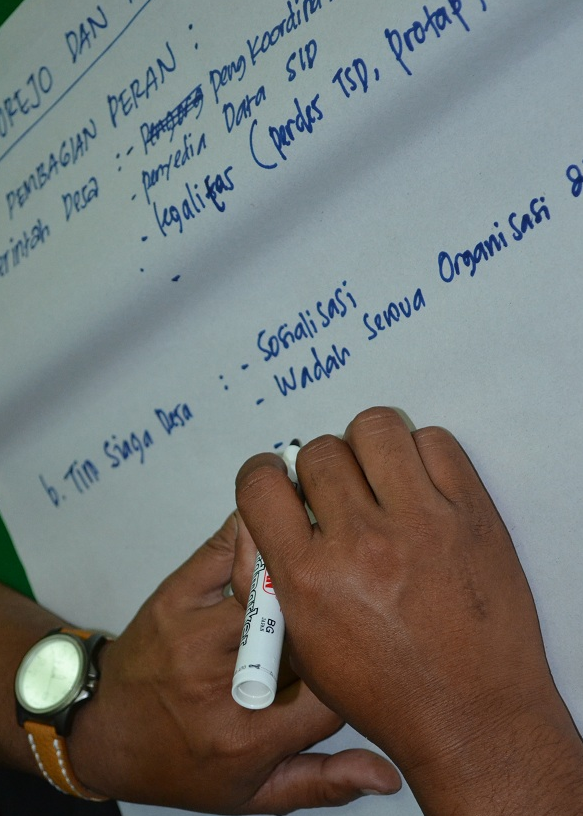 OREJO DAN
PEMBAGIAN PERAN :
erintah Desa : - pengkoordina
- penyedia Data SID
- legalitas (perdes TSD, protap,
-
b. Tim Siaga Desa : - Sosialisasi
- Wadah semua Organisasi &
-
BG